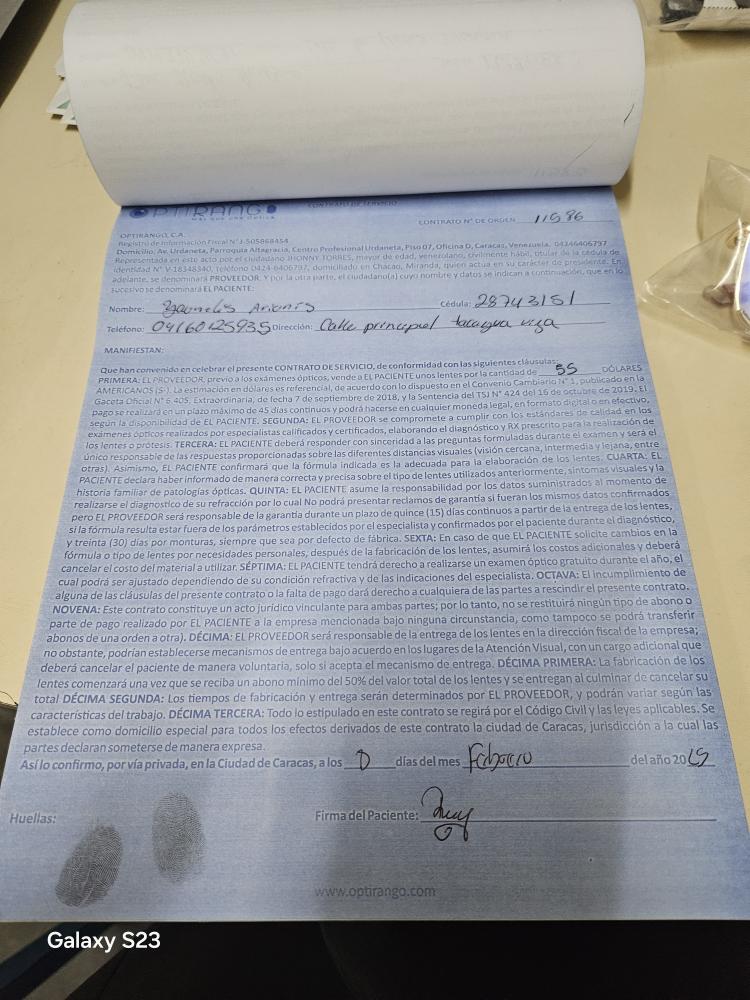 OPTIRANGO
MÁS QUE UNA ÓPTICA
CONTRATO DE SERVICIO
CONTRATO N° DE ORDEN 11586
OPTIRANGO, C.A.
Registro de Información Fiscal N° J-505868454
Domicilio, Av. Urdaneta, Parroquia Altagracia, Centro Profesional Urdaneta, Piso 07, Oficina D, Caracas, Venezuela. 04246406797
Representada en este acto por el ciudadano JHONNY TORRES, mayor de edad, venezolano, civilmente hábil, titular de la cédula de
identidad N° V-18348340, Teléfono 0424-6406797, domiciliado en Chacao, Miranda, quien actúa en su carácter de presidente. En
adelante, se denominará PROVEEDOR. Y por la otra parte, el ciudadano(a) cuyo nombre y datos se indican a continuación, que en lo
sucesivo se denominará EL PACIENTE:
Nombre: Cédula: 28743151
Teléfono: 04160125935 Dirección: Calle principal tacagua vieja
MANIFIESTAN:
Que han convenido en celebrar el presente CONTRATO DE SERVICIO, de conformidad con las siguientes cláusulas:
PRIMERA: EL PROVEEDOR, previo a los exámenes ópticos, vende a EL PACIENTE unos lentes por la cantidad de 55 DÓLARES
AMERICANOS (S·). La estimación en dólares es referencial, de acuerdo con lo dispuesto en el Convenio Cambiario N° 1, publicado en la
Gaceta Oficial N° 6.405, Extraordinaria, de fecha 7 de septiembre de 2018, y la Sentencia del TSJ N° 424 del 16 de octubre de 2019. El
pago se realizará en un plazo máximo de 45 días continuos y podrá hacerse en cualquier moneda legal, en formato digital o en efectivo,
según la disponibilidad de EL PACIENTE. SEGUNDA: EL PROVEEDOR se compromete a cumplir con los estándares de calidad en los
exámenes ópticos realizados por especialistas calificados y certificados, elaborando el diagnóstico y RX prescrito para la realización de
los lentes o prótesis. TERCERA: EL PACIENTE deberá responder con sinceridad a las preguntas formuladas durante el examen y será el
único responsable de las respuestas proporcionadas sobre las diferentes distancias visuales (visión cercana, intermedia y lejana, entre
otras). Asimismo, EL PACIENTE confirmará que la fórmula indicada es la adecuada para la elaboración de los lentes. CUARTA: EL
PACIENTE declara haber informado de manera correcta y precisa sobre el tipo de lentes utilizados anteriormente, síntomas visuales y la
historia familiar de patologías ópticas. QUINTA: EL PACIENTE asume la responsabilidad por los datos suministrados al momento de
realizarse el diagnostico de su refracción por lo cual No podrá presentar reclamos de garantía si fueran los mismos datos confirmados
pero EL PROVEEDOR será responsable de la garantía durante un plazo de quince (15) días continuos a partir de la entrega de los lentes,
si la fórmula resulta estar fuera de los parámetros establecidos por el especialista y confirmados por el paciente durante el diagnóstico,
y treinta (30) días por monturas, siempre que sea por defecto de fábrica. SEXTA: En caso de que EL PACIENTE solicite cambios en la
fórmula o tipo de lentes por necesidades personales, después de la fabricación de los lentes, asumirá los costos adicionales y deberá
cancelar el costo del material a utilizar. SÉPTIMA: EL PACIENTE tendrá derecho a realizarse un examen óptico gratuito durante el año, el
cual podrá ser ajustado dependiendo de su condición refractiva y de las indicaciones del especialista. OCTAVA: El incumplimiento de
alguna de las cláusulas del presente contrato o la falta de pago dará derecho a cualquiera de las partes a rescindir el presente contrato.
NOVENA: Este contrato constituye un acto jurídico vinculante para ambas partes; por lo tanto, no se restituirá ningún tipo de abono o
parte de pago realizado por EL PACIENTE a la empresa mencionada bajo ninguna circunstancia, como tampoco se podrá transferir
abonos de una orden a otra). DÉCIMA: EL PROVEEDOR será responsable de la entrega de los lentes en la dirección fiscal de la empresa;
no obstante, podrían establecerse mecanismos de entrega bajo acuerdo en los lugares de la Atención Visual, con un cargo adicional que
deberá cancelar el paciente de manera voluntaria, solo si acepta el mecanismo de entrega. DÉCIMA PRIMERA: La fabricación de los
lentes comenzará una vez que se reciba un abono mínimo del 50% del valor total de los lentes y se entregan al culminar de cancelar su
total DÉCIMA SEGUNDA: Los tiempos de fabricación y entrega serán determinados por EL PROVEEDOR, y podrán variar según las
características del trabajo. DÉCIMA TERCERA: Todo lo estipulado en este contrato se regirá por el Código Civil y las leyes aplicables. Se
establece como domicilio especial para todos los efectos derivados de este contrato la ciudad de Caracas, jurisdicción a la cual las
partes declaran someterse de manera expresa.
Así lo confirmo, por vía privada, en la Ciudad de Caracas, a los días del mes Febrero del año 20
Huellas:
Firma del Paciente:
www.optirango.com
Galaxy S23